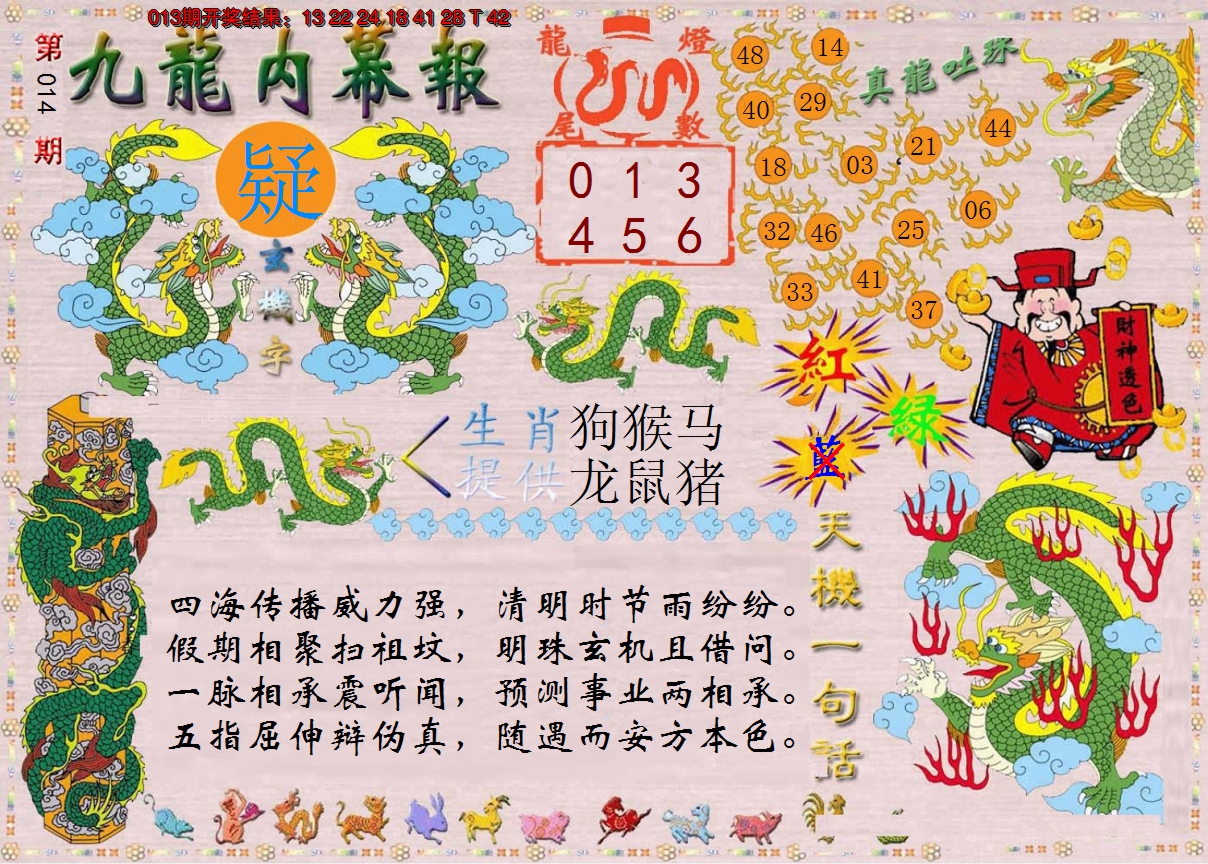 013期开奖结果：13 22 24 18 41 28 T 42
第014期
九龍内幕報
疑
玄機字
龍燈
尾數
0 1 3
4 5 6
真龍吐珠
48 14
40 29
18 03 21 44
32 46 25 06
33 41 37
紅
綠
藍
財神透色
生肖 狗猴马
提供 龙鼠猪
四海传播威力强，清明时节雨纷纷。
假期相聚扫祖坟，明珠玄机且借问。
一脉相承震听闻，预测事业两相承。
五指屈伸辩伪真，随遇而安方本色。
天機一句話